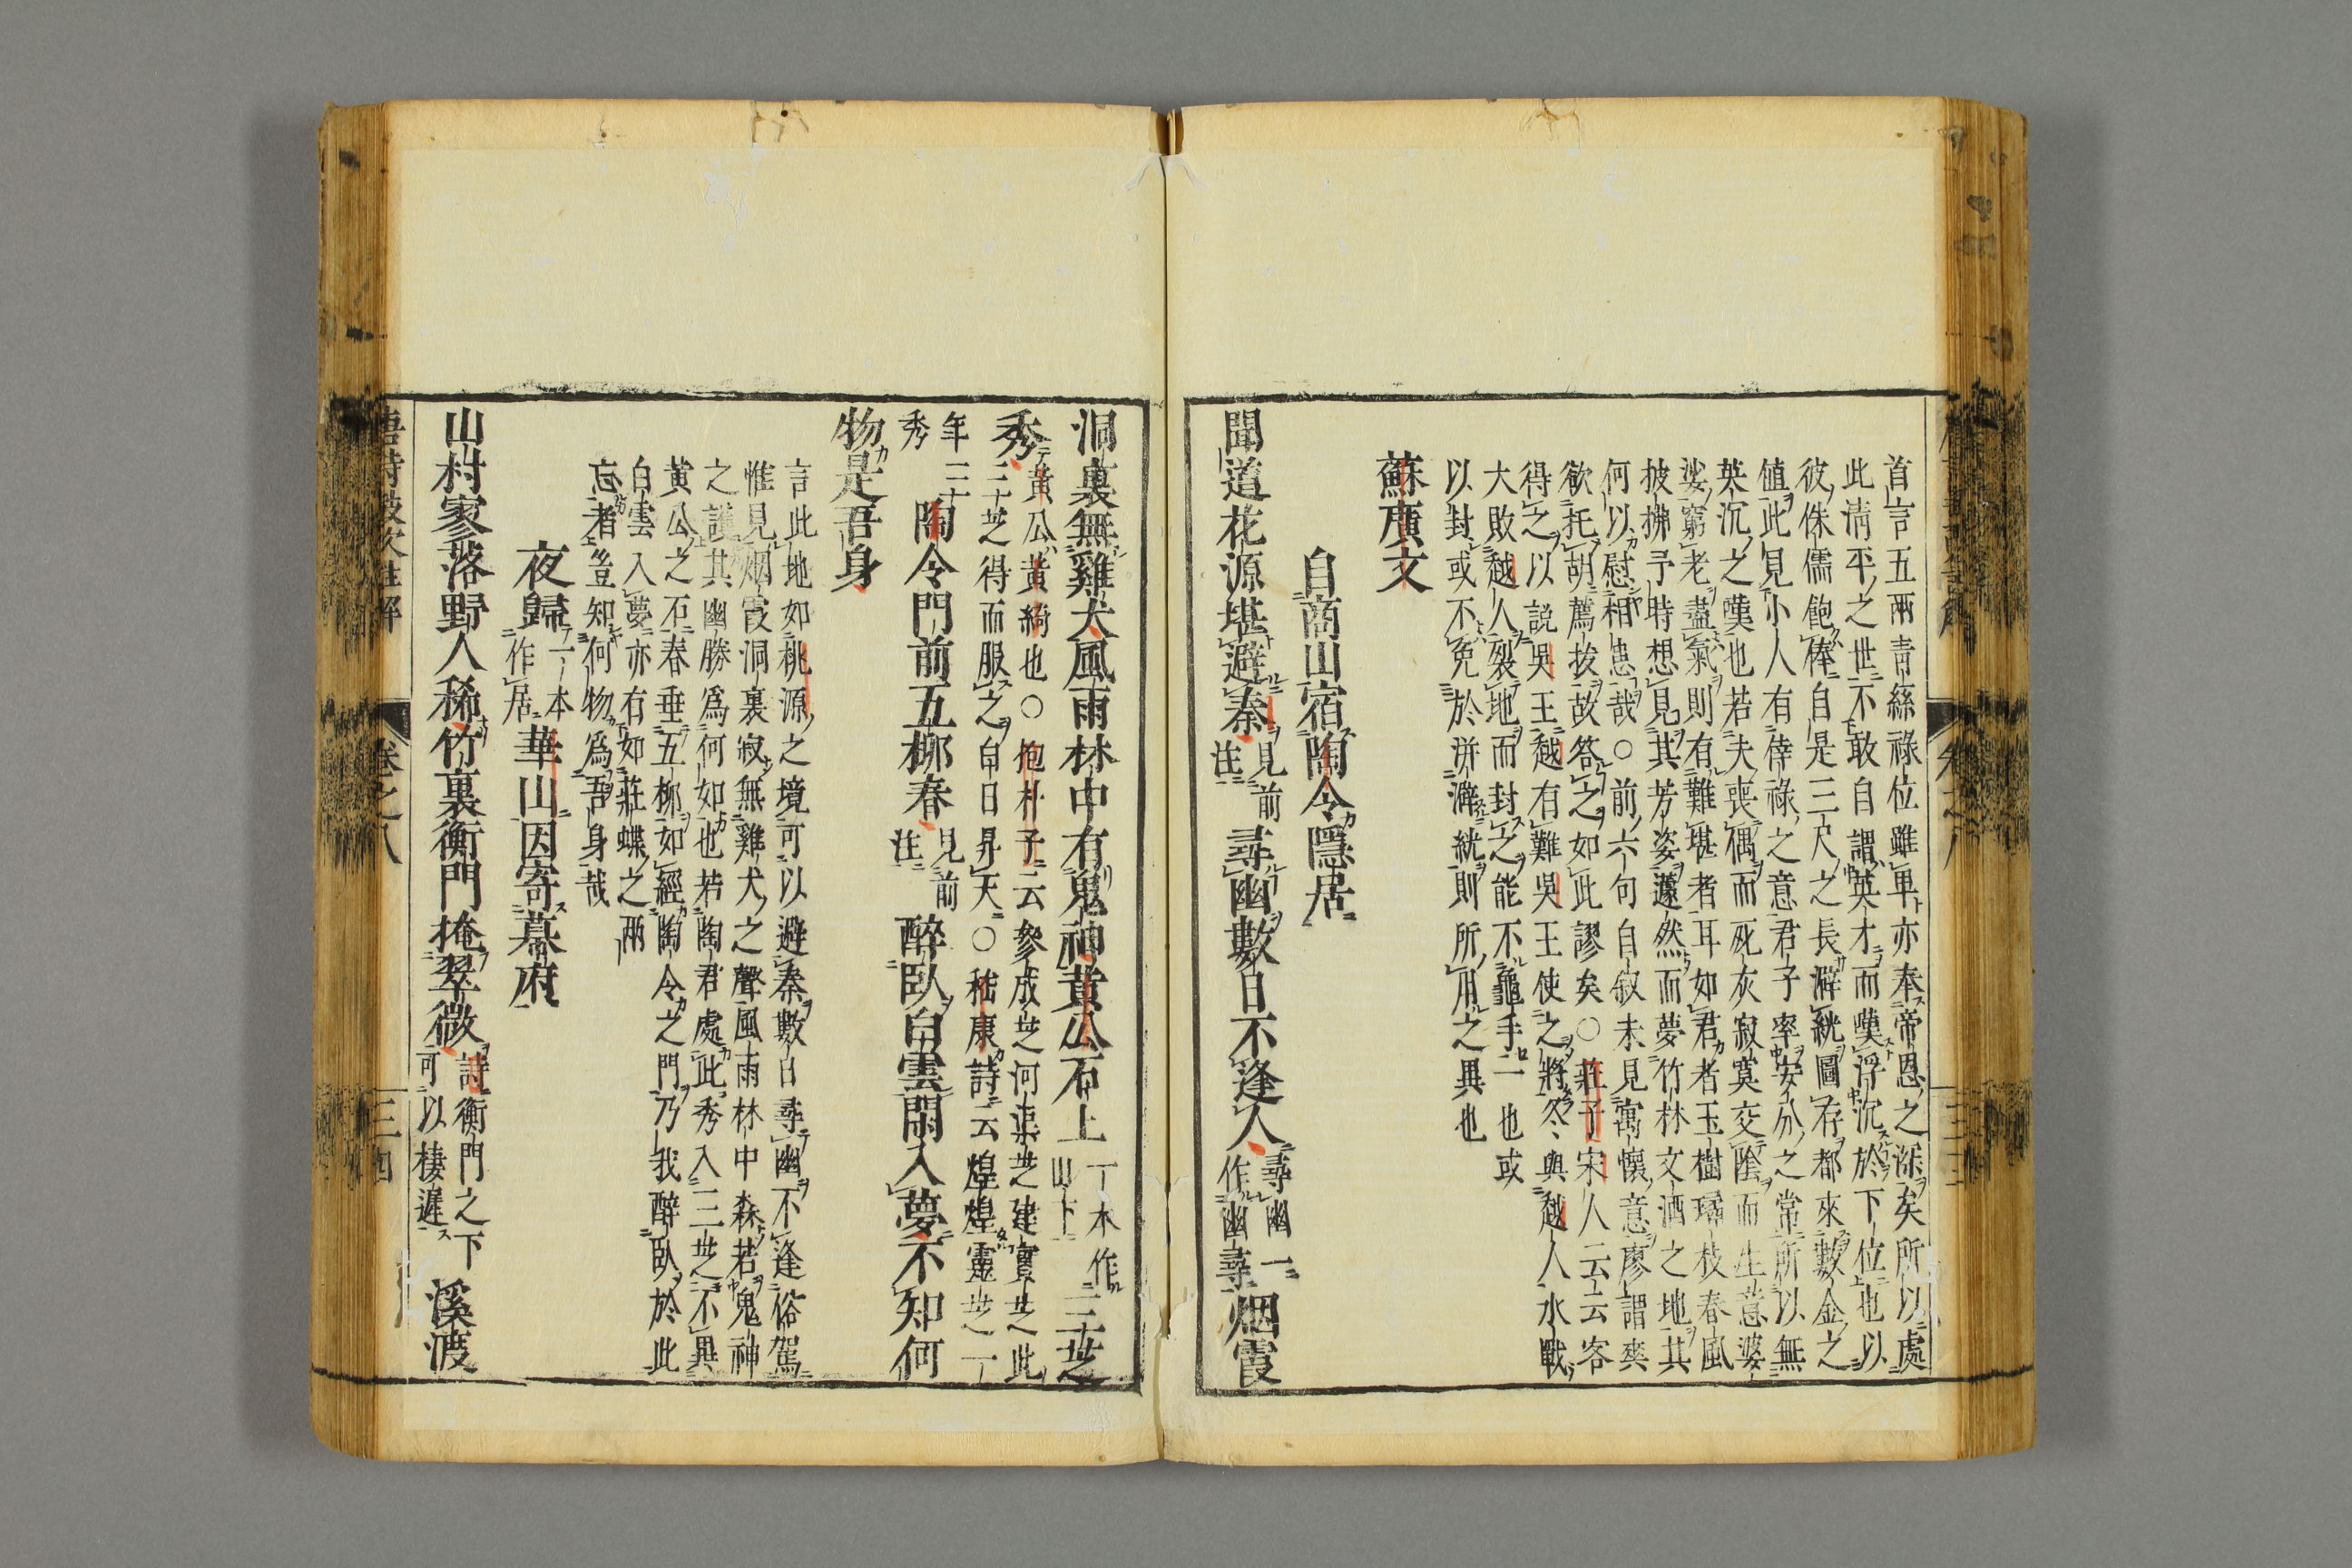 首言五兩青絲祿位雖卑亦奉帝恩之深矣所以處
此淸平之世不敢自謂英才而嘆浮沉於下位也以
彼侏儒飽俸自是三尺之長澼絖圖存都來數金之
値此見小人有倖祿之意君子率安分之常所以無
英沉之嘆也若夫喪偶而死灰寂寞交陰而生意婆
娑窮老盡氣則有難堪者耳如君者玉樹瓊枝春風
披拂予時想見其芳姿蘧然而夢竹林文酒之地其
何以慰相思哉○前六句自叙未見寓懷意廖謂爽
欲托胡薦拔故答之如此謬矣○莊子宋人云云客
得之以説吳王越有難吳王使之將冬與越人水戰
大敗越人裂地而封之能不龜手一也或
以封或不免於洴澼絖則所用之異也
蘇廣文
自商山宿陶令隱居
聞道花源堪避秦
見前
注
尋幽數日不逢人
尋幽一
作幽尋
烟霞
洞裏無雞犬風雨林中有鬼神黃公石上
一本作
山下
三芝
秀
黃公黃綺也○抱朴子云參成芝河渠芝建實芝此
三芝得而服之白日昇天○嵇康詩云煌煌靈芝一
年三
秀
陶令門前五柳春
見前
注
醉臥白雲閒入夢不知何
物是吾身
言此地如桃源之境可以避秦數日尋幽不逢俗駕
惟見烟霞洞裏寂無雞犬之聲風雨林中森若鬼神
之護其幽勝爲何如也若陶君處此秀入三芝不異
黃公之石春垂五柳如經陶令之門乃我醉臥於此
白雲入夢亦有如莊蝶之兩
忘者豈知何物爲吾身哉
夜歸
一本
作居
華山因寄幕府
山村寥落野人稀竹裏衡門掩翠微
詩衡門之下
可以棲遲
溪渡
卷之八
三四